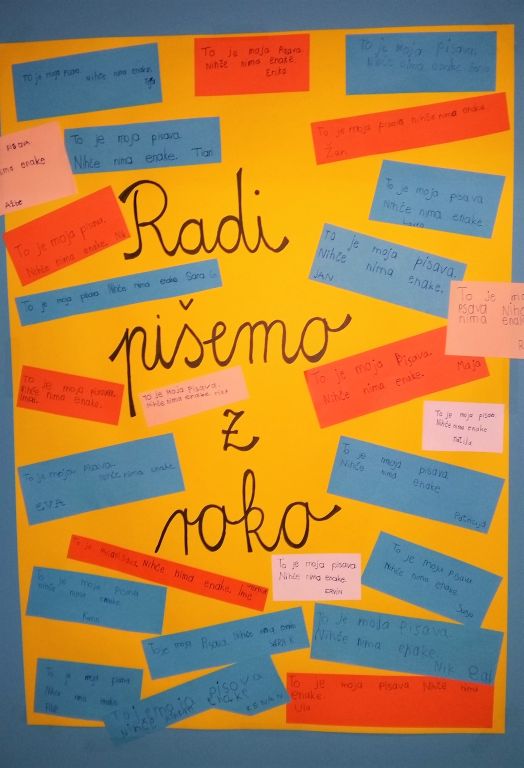 To je moja pisava. Nihče nima enake.
To je moja Pisava.
Nihče nima enake.
Enika
To je moja pisava.
Nihče nima enake
pisava
nima enake
Ažbe
To je moja pisava.
Nihče nima enake. Tian
To je moja pisava nihče nima enake.
Žan
To je moja pisava
Nihče nima enake
To je moja pisava.
Nihče nima enake.
Radi
To je moja pisava.
Nihče nima enake.
JAN
To je moja pisava Nihče nima enake Sara G
To je
pisava
nima enake
pišemo
To je moja Pisava.
Nihče nima enake.
Maja
To je moja pisava.
Nihče nima
enake.
To je Moja Pisava.
Nihče nima enake
To je moja
Nihče nima enake
z
To je moja Pisava
nihče nima enake
EVA
To je moja pisava
Nihče nima enake.
roko
Nihče nima enake.
To je moja pisava
Nihče nima enake.
ERVIN
To je moja pisava
Nihče nima enake.
To je moja Pisava
nihče nima enake.
To je moja Pisava. Nihče nima
SARA K
To je moja Pisava.
Nihče nima enake.
Nik
To je moja pisava
Nihče nima enake
To je moja pisava
Nihče nima enake
KENAN
To je moja pisava Nihče nima
enake.